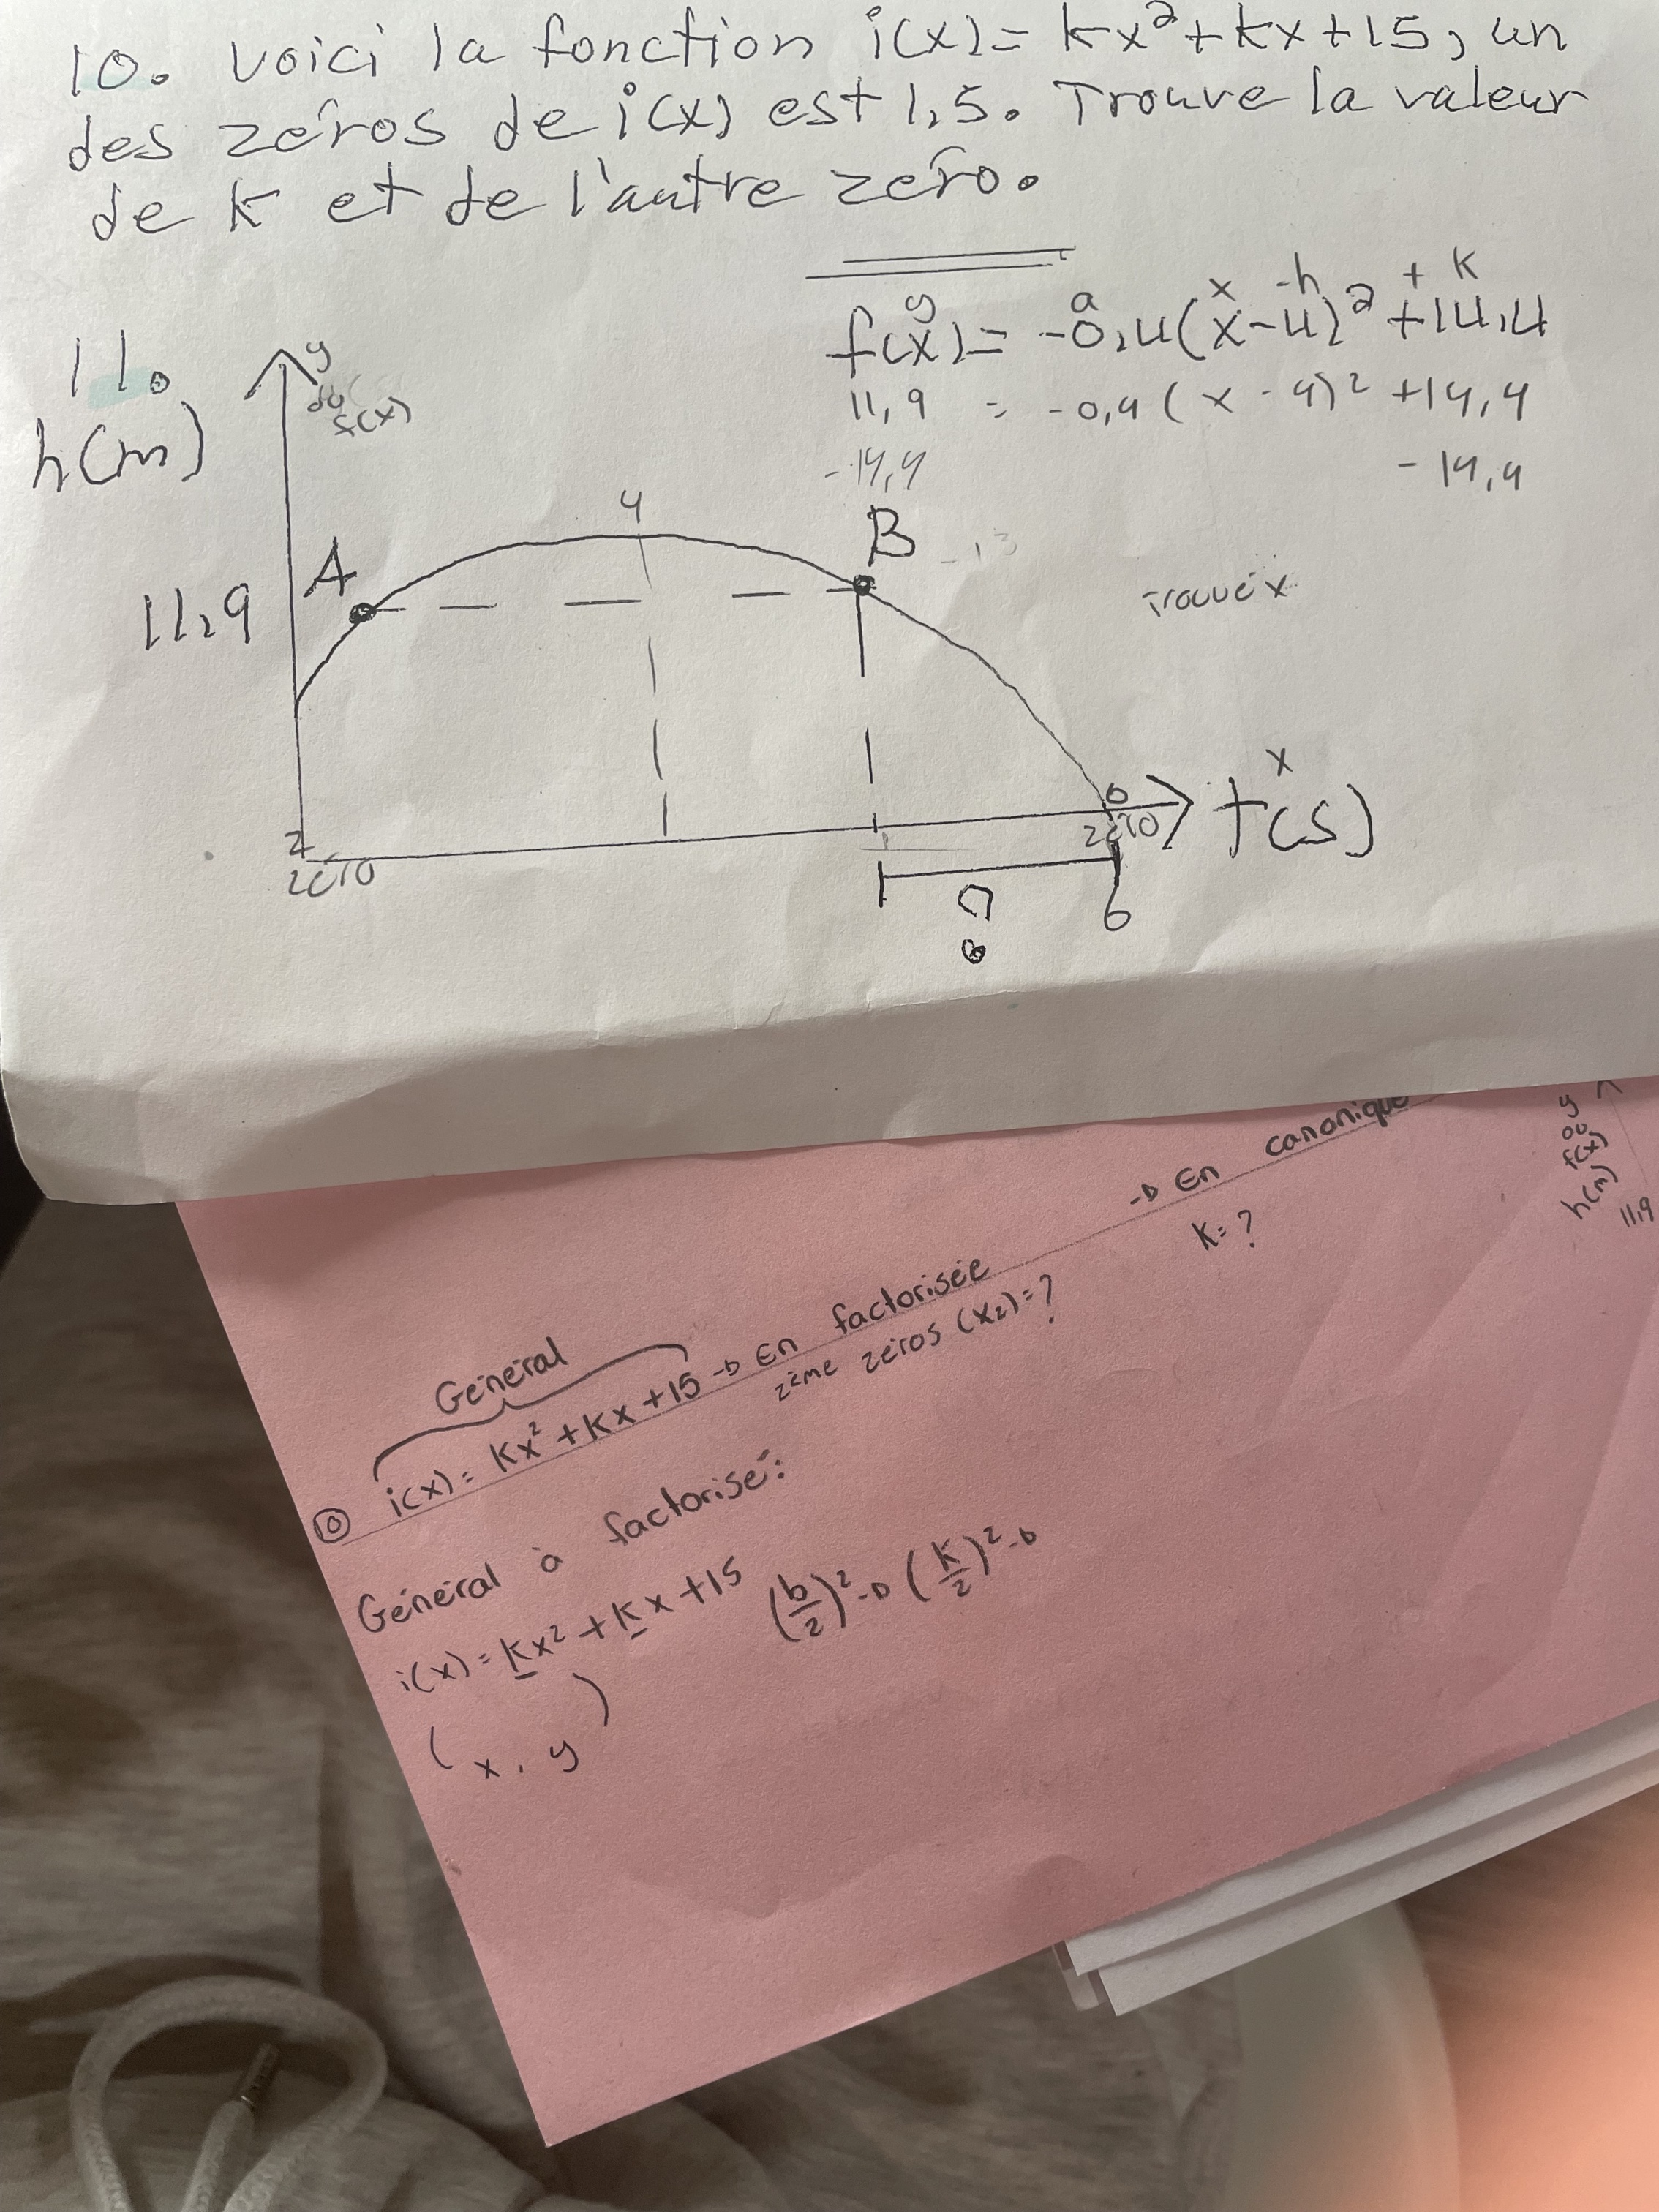 10. Voici la fonction i(x)= kx²+kx+15, un
des zéros de i(x) est 1,5. Trouve la valeur
de k et de l'autre zéro.
y a x -h + k
f(x)= -0,4(x-4)²+14,4
11,9 = -0,4(x-4)²+14,4
-14,4 -14,4
11.
h(m)
y
ou
f(x)
4
A
B
-13
11,9
Trouve x
x
t(s)
zéro
zéro
?
6
Général
⑩ i(x)= kx²+kx+15 → En factorisée → En canonique
2ème zéros (x₂)=? k=?
Général à factorisé:
i(x)= kx²+kx+15 (b/2)² → (k/2)² →
(x, y)
y
ou
f(x)
h(m)
11,9